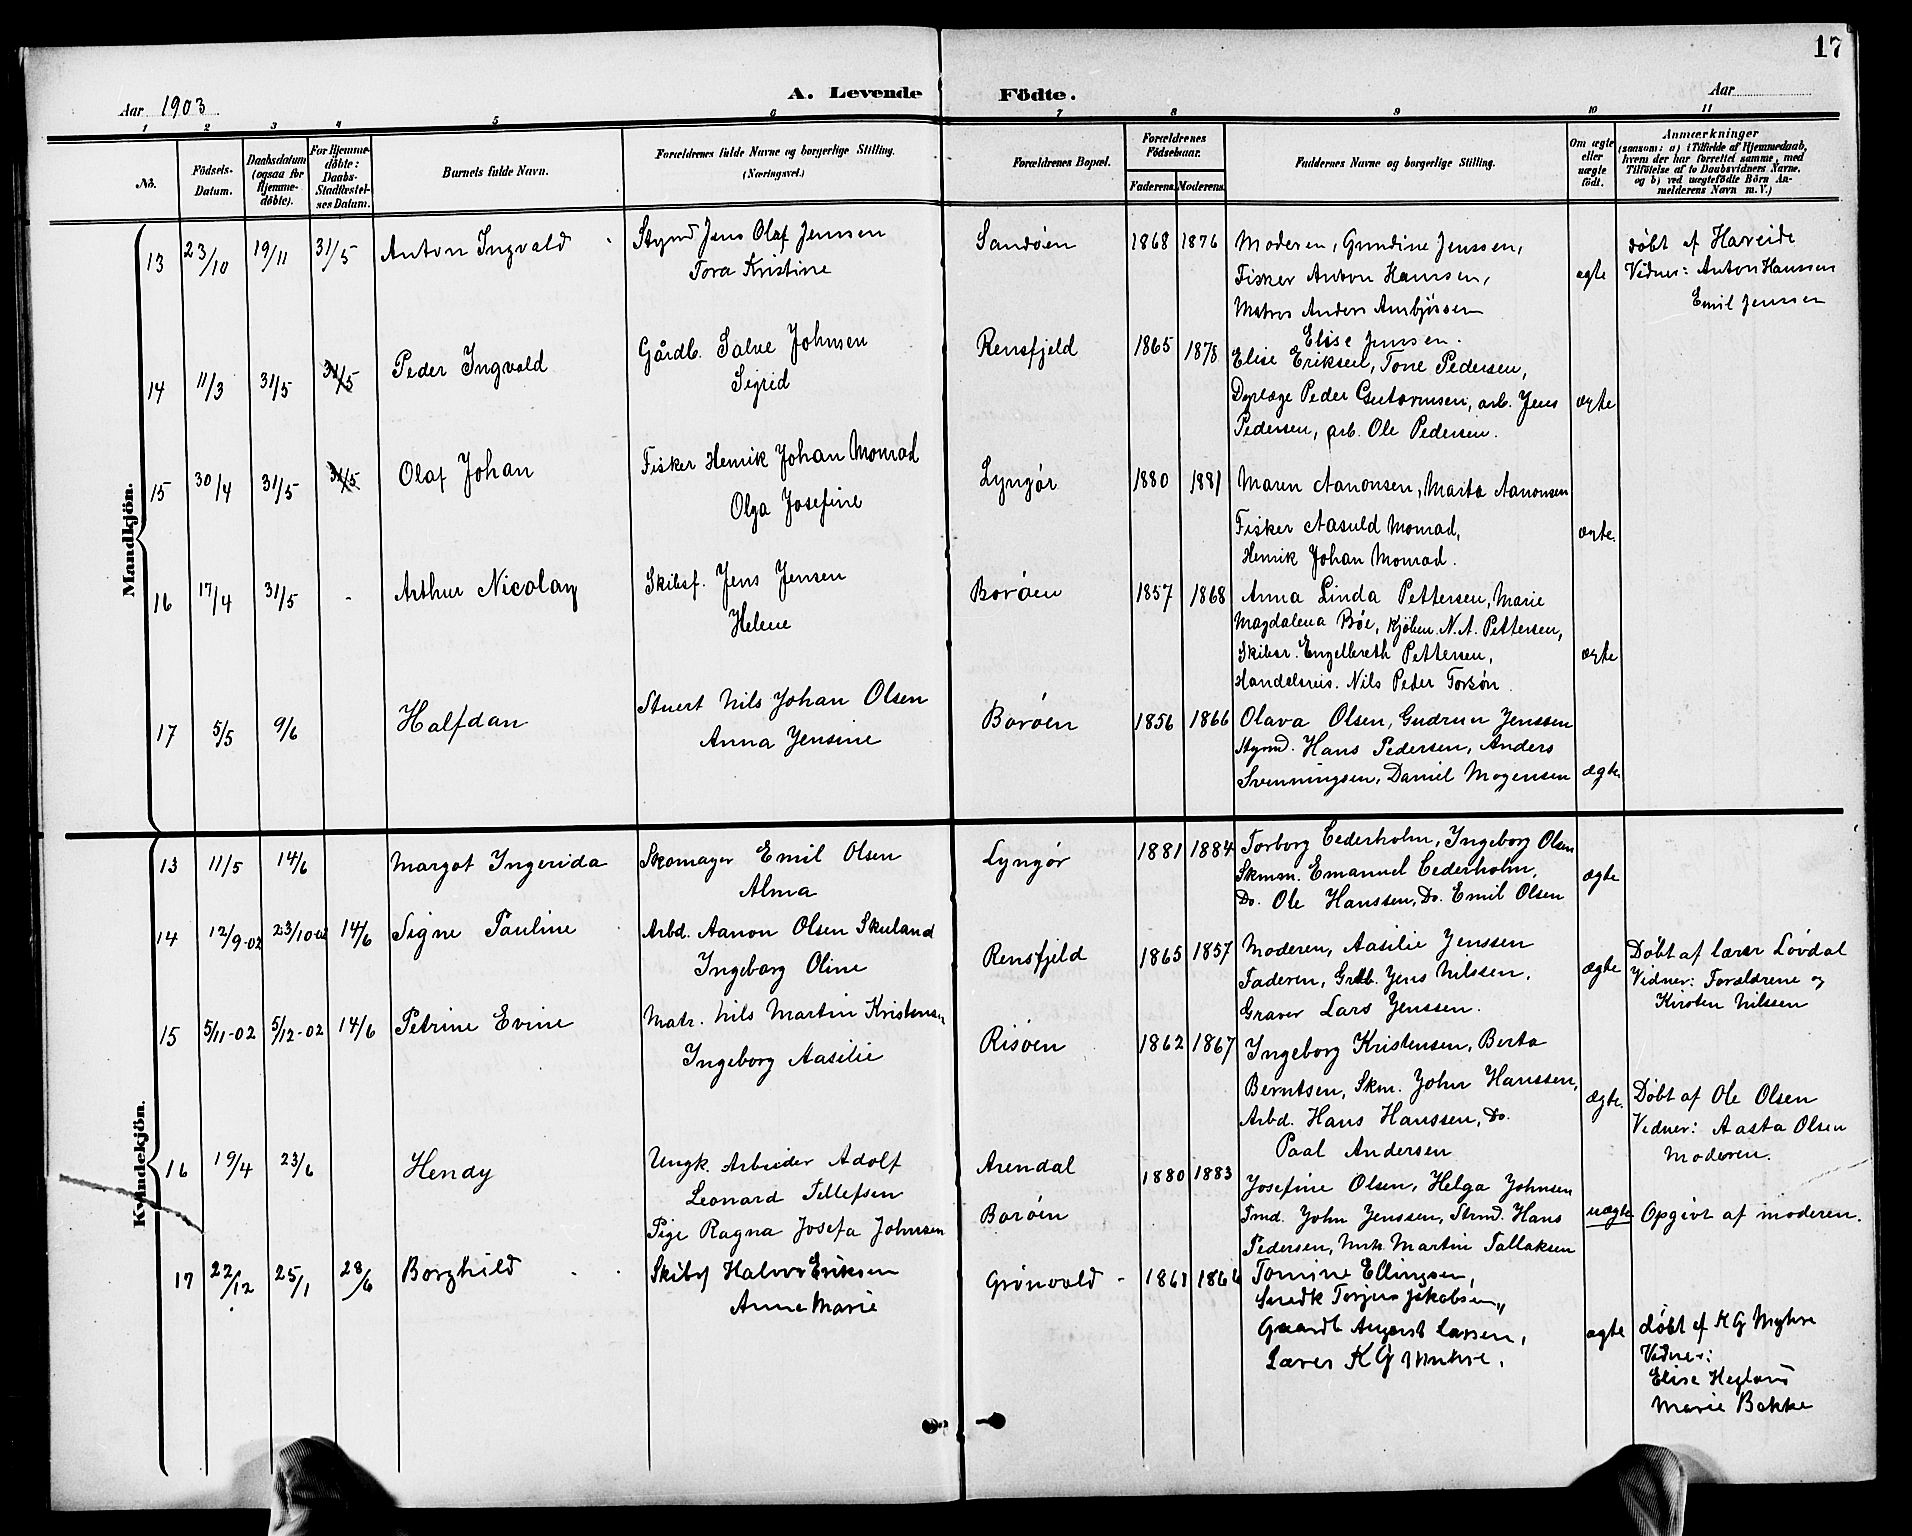 17
Aar 1903
A. Levende Födte.
Aar
1 2 3 4 5 6 7 8 9 10 11
No.
Födsels-Datum.
Daabsdatum (ogsaa for Hjemme-döbte).
For Hjemme-döbte: Daabs-Stadfæstel-ses Datum.
Barnets fulde Navn.
Forældrenes fulde Navne og borgerlige Stilling. (Næringsvei.)
Forældrenes Bopæl.
Forældrenes Födselsaar.
Faderens. Moderens.
Faddernes Navne og borgerlige Stilling.
Om ægte eller uægte födt.
Anmærkninger
(saasom: a) i Tilfælde af Hjemmedaab, hvem der har forrettet samme, med Tilföielse af to Daabsvidners Navne, og b) ved uægtefödte Börn An-melderens Navn m. V.)
Mandkjön.
13 23/10 19/11 31/5 Anton Ingvald
Stymd Jens Olaf Jenssen
Tora Kristine
Sandöen 1868 1876
Moderen, Gundine Jenssen,
Fisker Anton Hanssen,
Matros Anders Ambjössen
Elise Jenssen.
ægte
döbt af Hareide
Vidner: Anton Hanssen
Emil Jenssen
14 11/3 31/5 31/5 Peder Ingvald
Gårdb. Salve Johnsen
Sigrid
Rensfjeld 1865 1878
Elise Eriksen, Tone Pedersen,
Dyrlæge Peder Gutormsen, arb. Jens
Pedersen, arb. Ole Pedersen.
ægte
15 30/4 31/5 31/5 Olaf Johan
Fisker Henrik Johan Monrad
Olga Josefine
Lyngör 1880 1881
Maren Aanonsen, Marta Aanonsen
Fisker Aasuld Monrad,
Henrik Johan Monrad.
ægte.
16 17/4 31/5 - Arthur Nicolay
Skibsf. Jens Jensen
Helene
Boröen 1857 1868
Anna Linda Pettersen, Marie
Magdalena Böe, Kjöbm. N. A. Pettersen,
Skibsr. Engelbreth Pettersen,
Handelsreis. Nils Peder Torsön.
ægte
17 5/5 9/6 Halfdan
Stuert Nils Johan Olsen
Anna Jensine
Boröen 1856 1866
Olava Olsen, Gudrun Jenssen
Stymd. Hans Pedersen, Anders
Svenningsen, Daniel Mogensen
ægte
Kvindekjön.
13 11/5 14/6 Margot Ingerida
Skomager Emil Olsen
Alma
Lyngör 1881 1884
Torborg Cederholm, Ingeborg Olsen
Skmm. Emanuel Cederholm,
Do. Ole Hanssen, Do. Emil Olsen
ægte
14 12/9-02 23/10-02 14/6 Signe Pauline
Arbd. Aanon Olsen Skuland
Ingeborg Oline
Rensfjeld 1865 1857
Moderen, Aasilie Jenssen
Faderen, Grdb. Jens Nilssen,
Graver Lars Jenssen.
ægte
Döbt af lærer Lövdal
Vidner: Forældrene og
Kirsten Nilssen
15 5/11-02 5/12-02 14/6 Petrine Evine
Matr. Nils Martin Kristensen
Ingeborg Aasilie
Risöen 1862 1867
Ingeborg Kristensen, Berta
Berntsen, Skm. John Hanssen,
Arbd. Hans Hanssen, Do.
Paal Andersen
ægte.
Döbt af Ole Olsen
Vidner: Aasta Olsen
Moderen.
16 19/4 23/6 Hendy
Ungk. Arbeider Adolf
Leonard Tellefsen
Pige Ragna Josefa Johnsen
Arendal
Boröen
1880 1883
Josefine Olsen, Helga Johnsen
Tmd. John Jenssen, Strmd. Hans
Pedersen, Mtr. Martin Tallaksen
uægte
Opgivt af moderen.
17 22/12 25/1 28/6 Borghild
Skibsf Halvor Eriksen
Anne Marie
Grönvold 1861 1866
Tomine Ellingsen,
Snedk Torjus Jakobsen,
Gaardb August Larsen,
Lærer K G Myhre.
ægte
döbt af K G Myhre
Vidner:
Elise Hegland
Marie Bakke